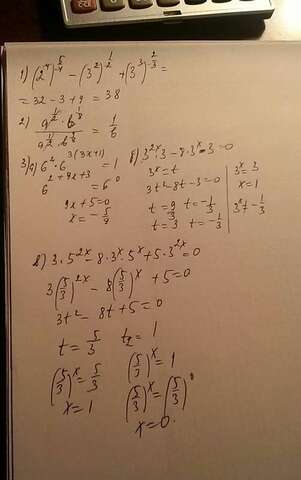 1) (2^4)^{5/4} - (3^2)^{1/2} + (3^3)^{2/3} =
= 32 - 3 + 9 = 38
3) а) 6^2 · 6^{3(3x+1)} = 1
6^{2+9x+3} = 6^0
9x + 5 = 0
x = -5/9
3^{2x}·3 - 8·3^x - 3 = 0
3^x = t
3t^2 - 8t - 3 = 0
t = 9/3 t = -1/3
t = 3 t = -1/3
3^x = 3
x = 1
3^x ≠ -1/3
3·5^{2x} - 8·3^x·5^x + 5·3^{2x} = 0
3(5/3)^{2x} - 8(5/3)^x + 5 = 0
3t^2 - 8t + 5 = 0
t = 5/3 t_2 = 1
(5/3)^x = 5/3 (5/3)^x = 1
x = 1 (5/3)^x = (5/3)^0
x = 0.